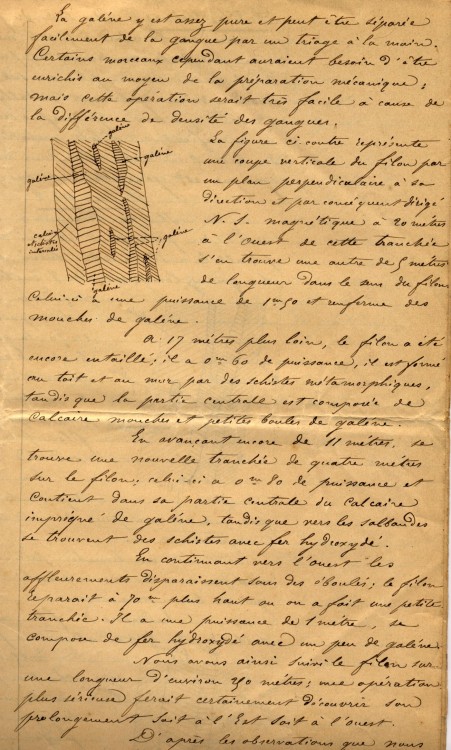 La galéne y est assez pure et peut être séparée
facilement de la gangue par un triage à la main.
Certains morceaux cependant auraient besoin d'être
enrichis au moyen de la préparation mécanique;
mais cette opération serait très facile à cause de
la différence de densité des gangues.
galéne
galéne
galéne
galéne
calcaire
et schistes
galéne
La figure ci-contre représente
une coupe verticale du filon par
un plan perpendiculaire à sa
direction et par conséquent dirigé
N. S. magnétique à 20 mètres
à l'Ouest de cette tranchée
s'en trouve une autre de 5 metres
de longueur dans le sens du filon.
Celui-ci a une puissance de 1m50 et renferme des
mouches de galéne.
A 17 métres plus loin, le filon a été
encore entaillé; il a 0m 60 de puissance, il est formé
au toit et au mur par des schistes métamorphiques,
tandis que la partie centrale est composée de
calcaire mouches et petites boules de galéne.
En avançant encore de 11 métres, se
trouve une nouvelle tranchée de quatre métres
sur le filon; celui-ci a 0m 80 de puissance et
contient dans sa partie centrale du calcaire
imprégné de galéne, tandis que vers les salbandes
se trouvent des schistes avec fer hydroxydé.
En continuant vers l'ouest les
affleurements disparaissent sous des éboulis; le filon
reparait à 70m plus haut ou on a fait une petite
tranchée. Il a une puissance de 1 mètre, se
compose de fer hydroxydé avec un peu de galéne.
Nous avons ainsi suivi le filon sur
une longueur d'environ 250 métres; une opération
plus sérieuse ferait certainement découvrir son
prolongement soit à l'Est soit à l'ouest.
D'après les observations que nous